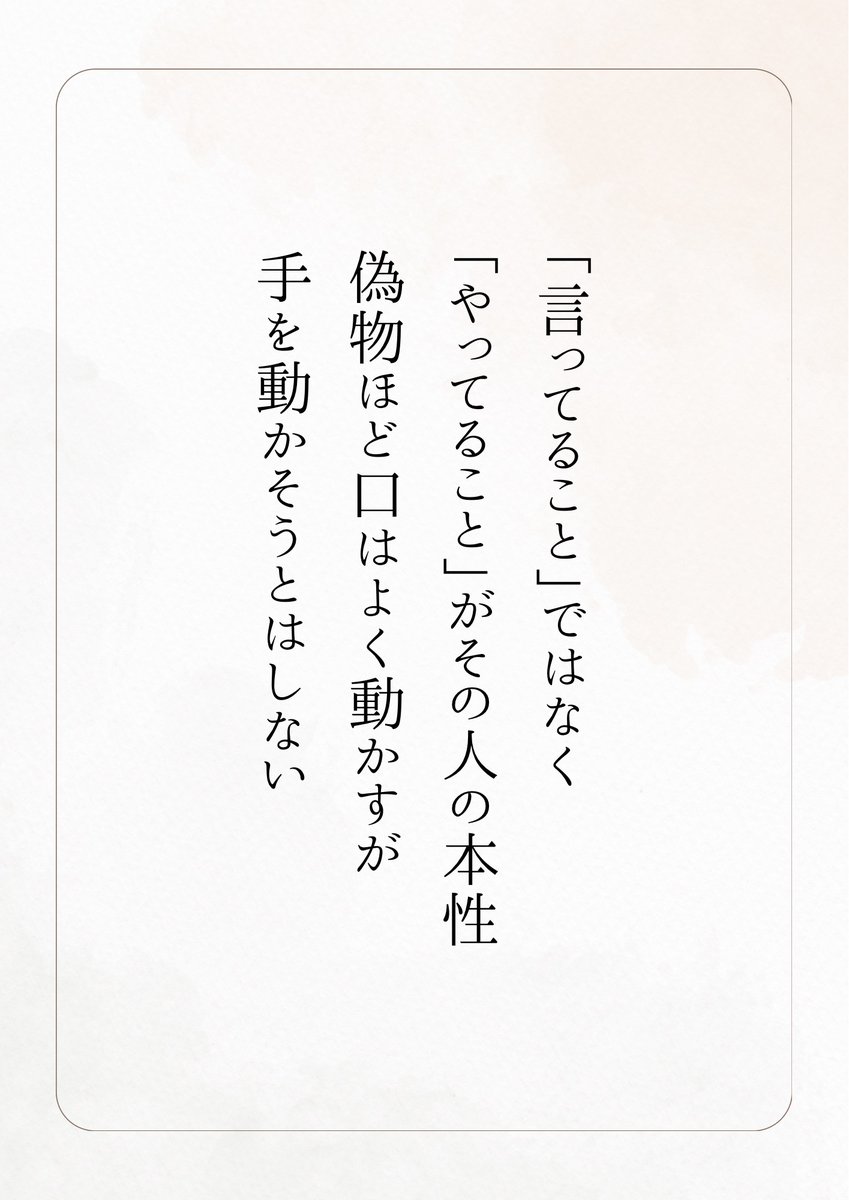 「言ってること」ではなく
「やってること」がその人の本性
偽物ほど口はよく動かすが
手を動かそうとはしない